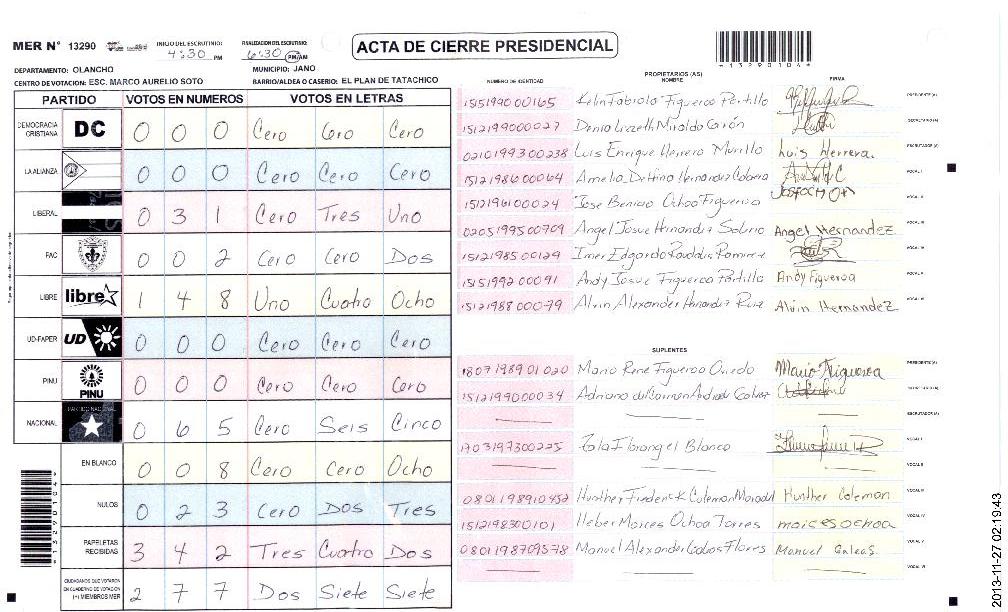 MER N° 13290
INICIO DEL ESCRUTINIO: 4:30 PM
FINALIZACION DEL ESCRUTINIO: 6:30 PM/AM
ACTA DE CIERRE PRESIDENCIAL
*13290104*
DEPARTAMENTO: OLANCHO
MUNICIPIO: JANO
CENTRO DE VOTACION: ESC. MARCO AURELIO SOTO
BARRIO/ALDEA O CASERIO: EL PLAN DE TATACHICO
PARTIDO VOTOS EN NUMEROS VOTOS EN LETRAS
DEMOCRACIA CRISTIANA DC 0 0 0 Cero Cero Cero
LA ALIANZA 0 0 0 Cero Cero Cero
LIBERAL 0 3 1 Cero Tres Uno
PAC 0 0 2 Cero Cero Dos
LIBRE libre 1 4 8 Uno Cuatro Ocho
UD-FAPER UD 0 0 0 Cero Cero Cero
PINU PINU 0 0 0 Cero Cero Cero
NACIONAL PARTIDO NACIONAL 0 6 5 Cero Seis Cinco
EN BLANCO 0 0 8 Cero Cero Ocho
NULOS 0 2 3 Cero Dos Tres
PAPELETAS RECIBIDAS 3 4 2 Tres Cuatro Dos
CIUDADANOS QUE VOTARON EN CUADERNO DE VOTACION (+) MIEMBROS MER 2 7 7 Dos Siete Siete
*13290104*
PROPIETARIOS (AS)
NUMERO DE IDENTIDAD NOMBRE FIRMA
1551990 00165 Kelin Fabiola Figueroa Portillo PRESIDENTE(A)
1512199000027 Denia Lizzeth Miralda Girón SECRETARIO (A)
0210199300238 Luis Enrique Herrera Murillo Luis Herrera. ESCRUTADOR (A)
1512198600064 Amelia Hernandez VOCAL I
1512196100024 Jose Benicio Ochoa Figueroa VOCAL II
0205199500709 Angel Josue Hernandez Angel Hernandez VOCAL III
1512198500129 Imer Edgardo VOCAL IV
1515199200091 Andy Josue Figueroa Portillo Andy Figueroa VOCAL V
1512198800079 Alvin Alexander Hernandez Ruiz Alvin Hernandez VOCAL VI
SUPLENTES
1807198901020 Mario Rene Figueroa Oviedo Mario Figueroa PRESIDENTE (A)
1512199000034 Adriana del Carmen SECRETARIO (A)
ESCRUTADOR (A)
1703197300225 Florangel Blanco VOCAL I
VOCAL II
Hunther Frederick Coleman Hunther Coleman VOCAL III
1512198300101 Heber Moises Ochoa Torres moises ochoa VOCAL IV
0801198709578 Manuel Alexander Flores Manuel VOCAL V
VOCAL VI
2013-11-27 02:19:43